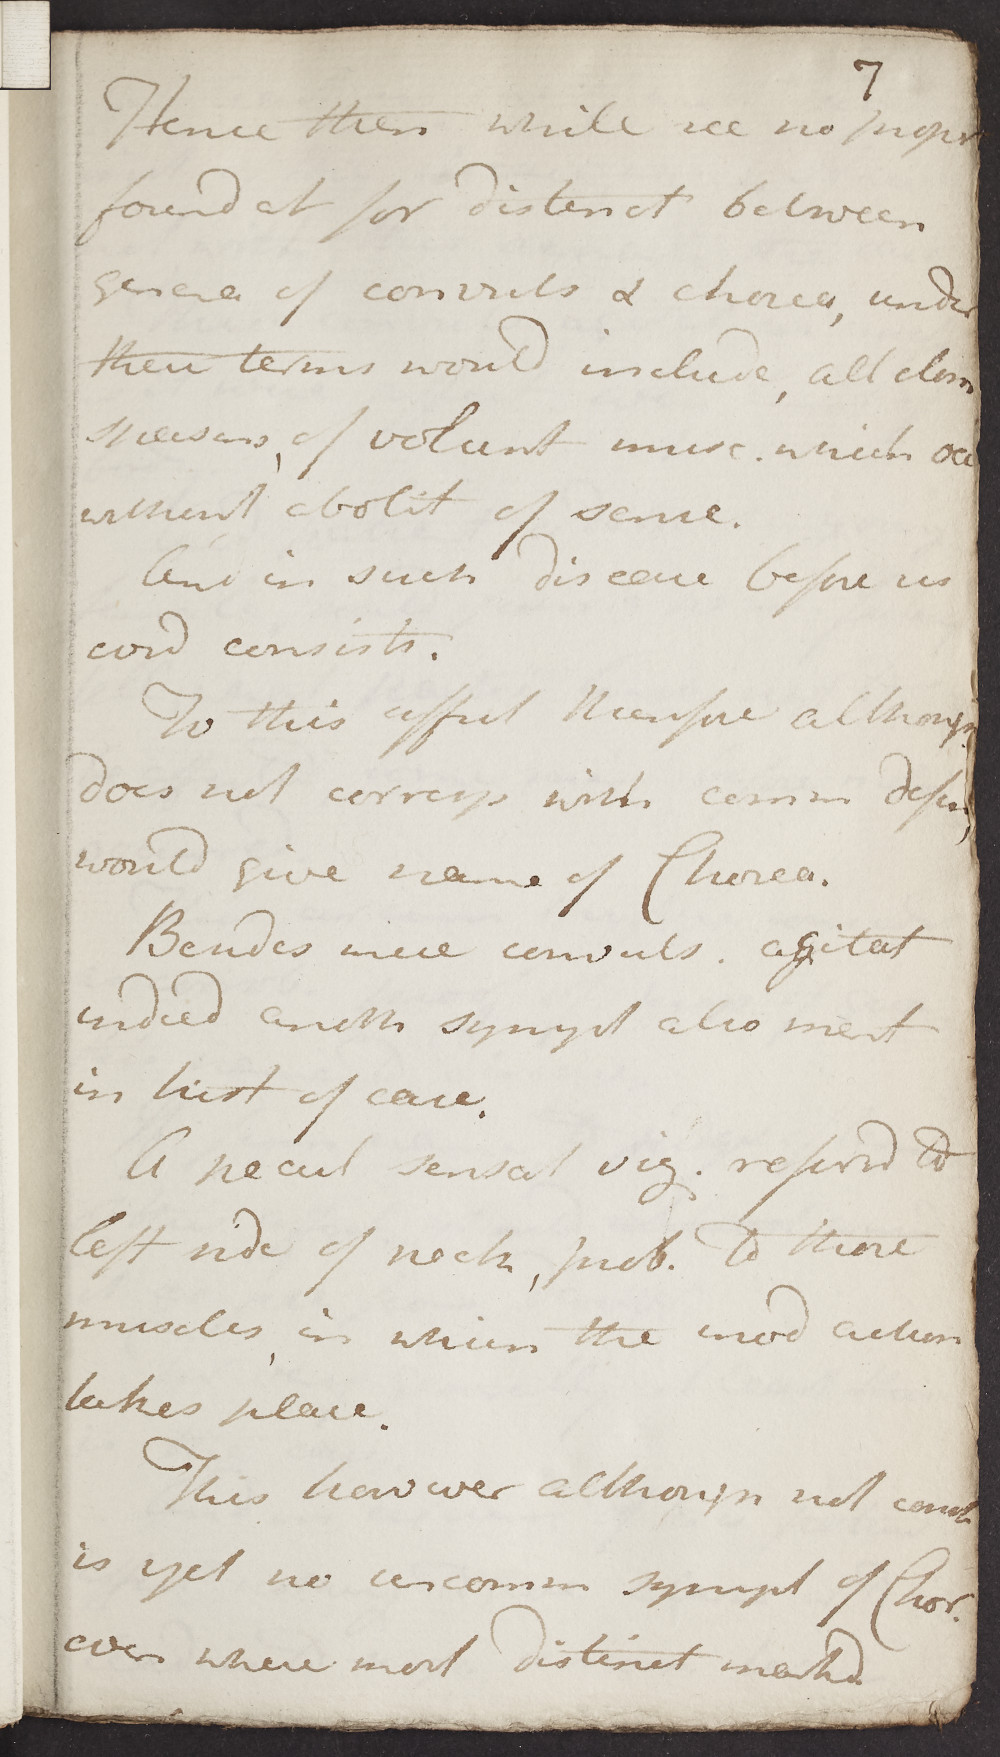 7
Hence then while see no proper
foundat for distinct between
genera of convuls & chorea, under
these terms would include, all clon
spasms, of volunt musc. which occ
without abolit of sense.
And in such disease before us
cond consists.
To this affect therefore although
does not corresp with comm defin,
would give name of Chorea.
Besides mere convuls. agitat
indeed anoth sympt also ment
in hist of case.
A pecul sensat viz. referrd to
left side of neck, prob. to those
muscles, in which the inord action
takes place.
This however although not const
is yet no uncomm sympt of Chor.
even where most distinct markd.